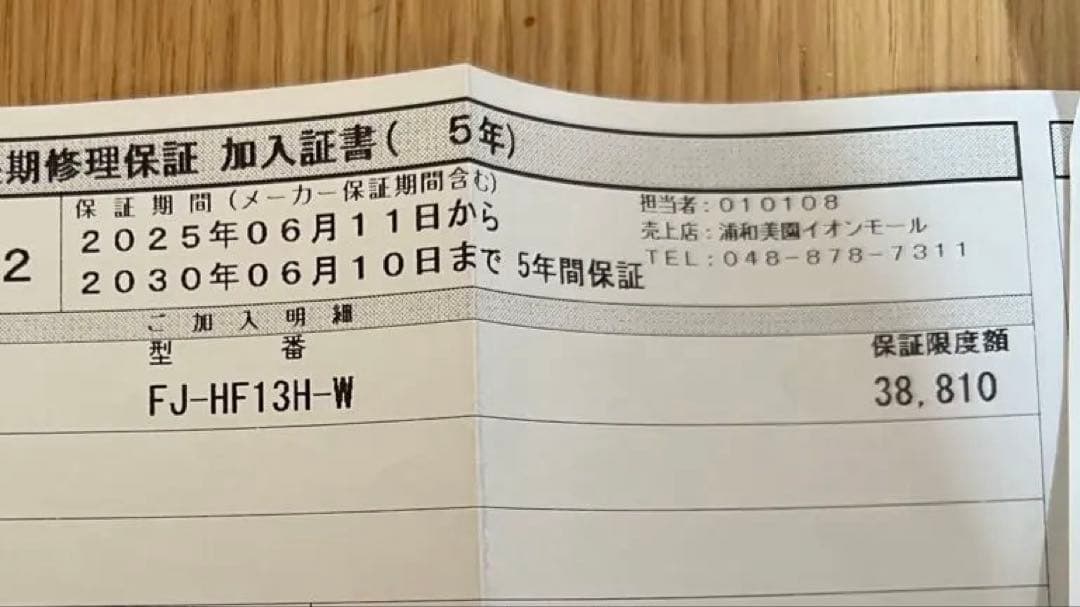 期修理保証 加入証書( 5年)
保証期間(メーカー保証期間含む)
2025年06月11日から
2
2030年06月10日まで 5年間保証
担当者:010108
売上店:浦和美園イオンモール
TEL:048-878-7311
ご加入明細
型番
保証限度額
FJ-HF13H-W
38,810